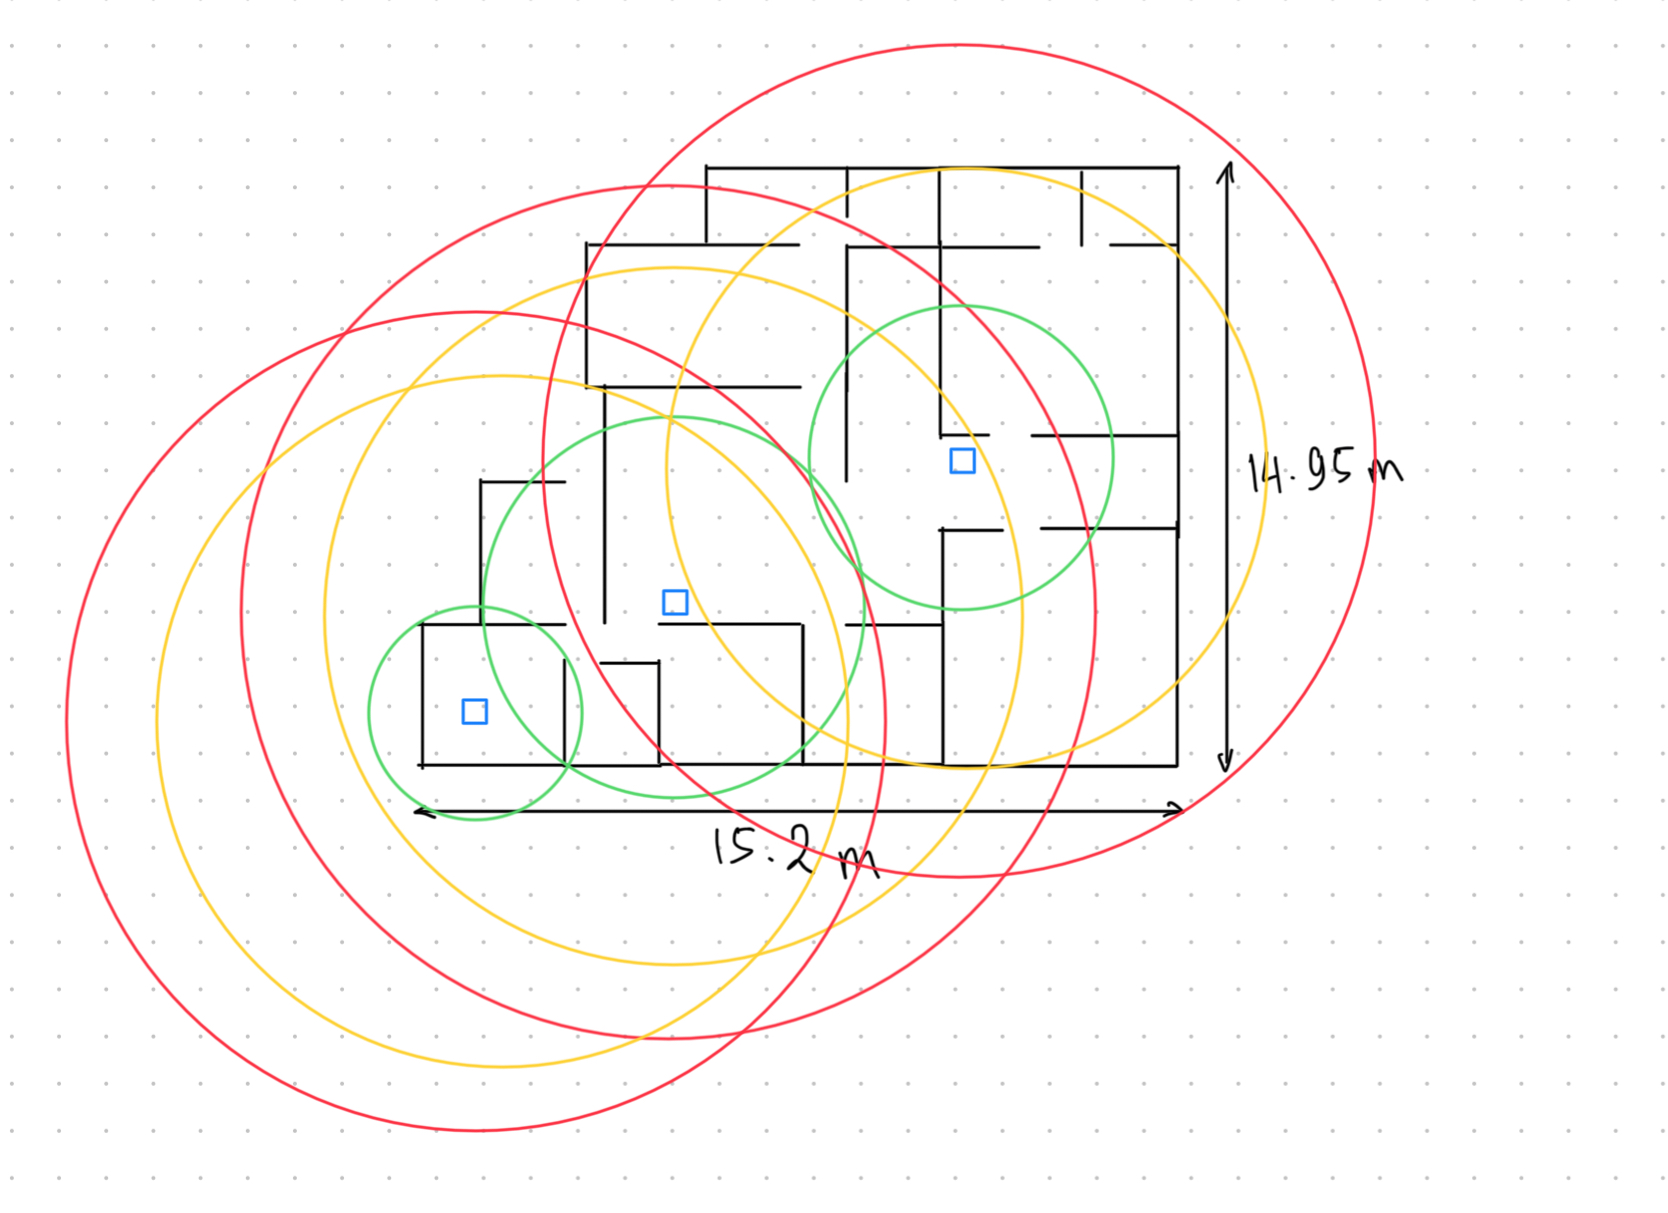 14.95 m
15.2 m